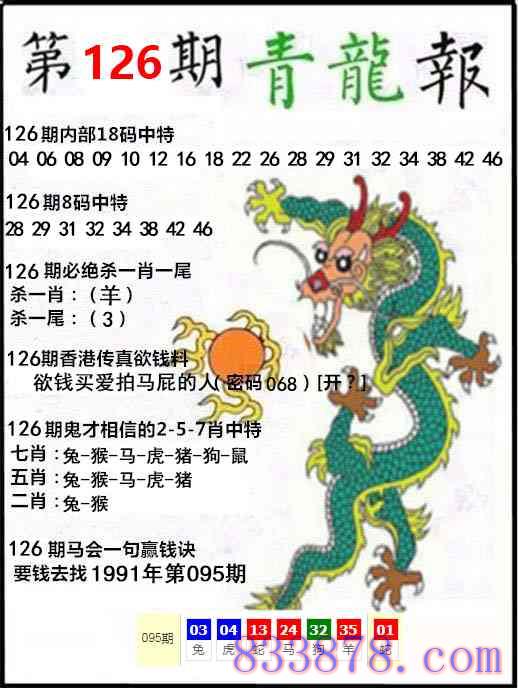 第126期青龍報
126期内部18码中特
04 06 08 09 10 12 16 18 22 26 28 29 31 32 34 38 42 46
126期8码中特
28 29 31 32 34 38 42 46
126 期必绝杀一肖一尾
杀一肖：（羊）
杀一尾：（3）
126期香港传真欲钱料
欲钱买爱拍马屁的人（密码068）[开？]
126期鬼才相信的2-5-7肖中特
七肖：兔-猴-马-虎-猪-狗-鼠
五肖：兔-猴-马-虎-猪
二肖：兔-猴
126 期马会一句赢钱诀
要钱去找1991年第095期
095期 03 04 13 24 32 35 01
兔 虎 蛇 马 狗 羊 蛇
833878.com